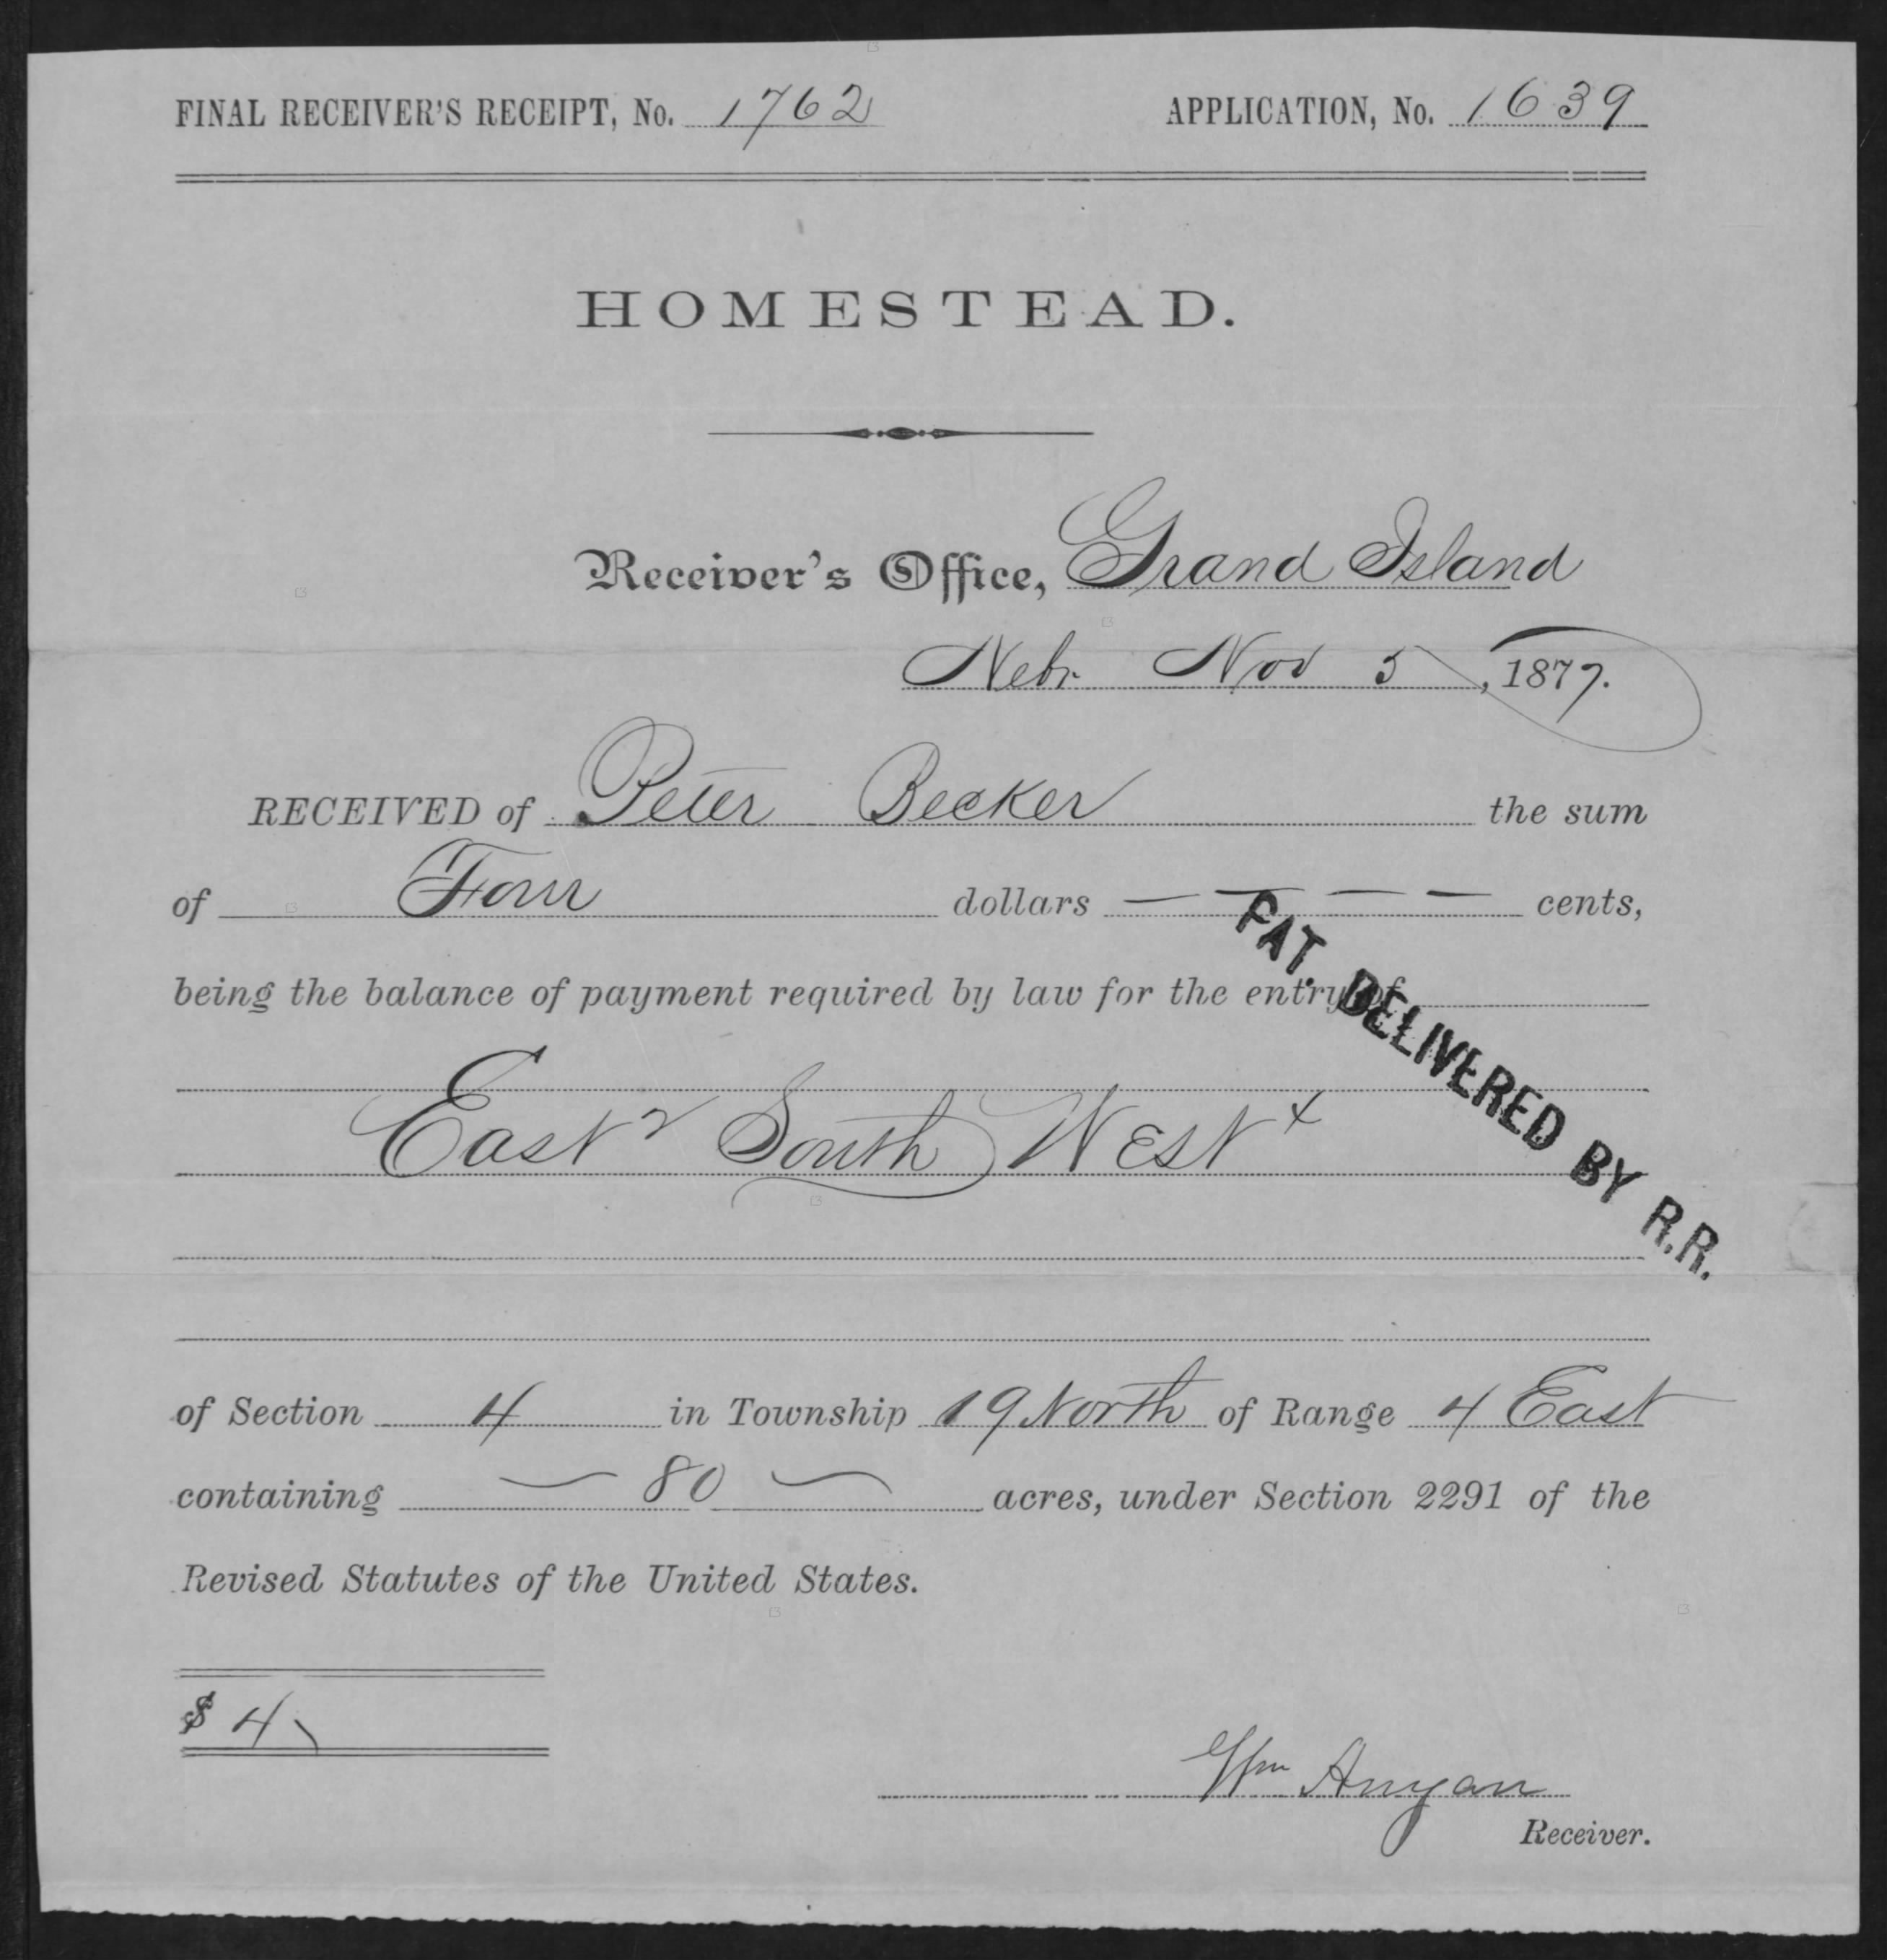 FINAL RECEIVER'S RECEIPT, No. 1762 APPLICATION, No. 1639
HOMESTEAD.
Receiver's Office, Grand Island
Nebr Nov 5, 1877.
RECEIVED of Peter Becker the sum
of Four dollars — — — — cents,
being the balance of payment required by law for the entry of
PAT. DELIVERED BY R.R.
East 2 South West 4
of Section 4 in Township 19 North of Range 4 East
containing — 80 — acres, under Section 2291 of the
Revised Statutes of the United States.
$ 4
Wm Anyan
Receiver.